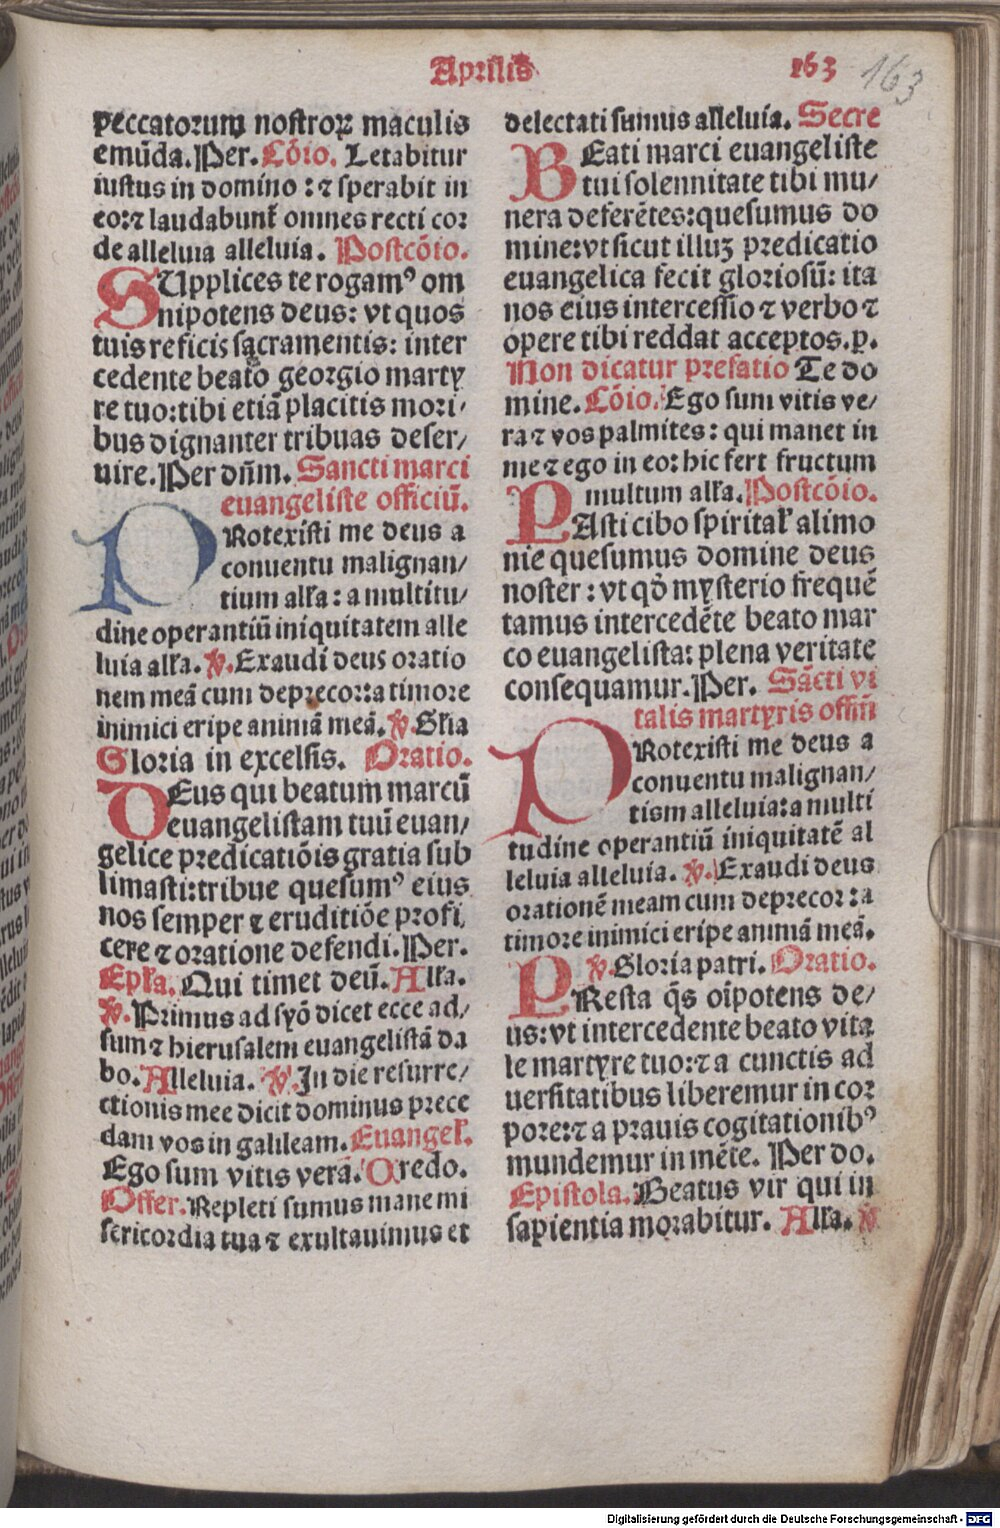 Aprilis
163
163
peccatorum nostroꝝ maculis
emūda. Per. Cōio. Letabitur
iustus in domino : ⁊ sperabit in
eo:⁊ laudabunt̄ omnes recti cor
de alleluia alleluia. Postcōio.
SUpplices te rogamꝰ om
nipotens deus: vt quos
tuis reficis sacramentis: inter
cedente beato georgio marty
re tuo:tibi etiā placitis mori/
bus dignanter tribuas deser/
uire. Per dn̄m. Sancti marci
euangeliste officiū.
PRotexisti me deus a
conuentu malignan/
tium all'a: a multitu/
dine operantiū iniquitatem alle
luia all'a. ℣. Exaudi deus oratio
nem meā cum deprecor:a timore
inimici eripe animā meā. ℣. Gl'ia
Gloria in excelsis. Oratio.
DEus qui beatum marcū
euangelistam tuū euan/
gelice predicatiōis gratia sub
limasti:tribue quesumꝰ eius
nos semper ⁊ eruditiōe profi
cere ⁊ oratione defendi. Per.
Epl'a. Qui timet deū. All'a.
℣. Primus ad syō dicet ecce ad/
sum ⁊ hierusalem euangelistā da
bo. Alleluia. ℣. In die resurre/
ctionis mee dicit dominus prece
dam vos in galileam. Euangel'.
Ego sum vitis verā. Credo.
Offer. Repleti sumus mane mi
sericordia tua ⁊ exultauimus et
delectati sumus alleluia. Secre
BEati marci euangeliste
tui solennitate tibi mu/
nera deferētes:quesumus do
mine:vt sicut illuꝫ predicatio
euangelica fecit gloriosū: ita
nos eius intercessio ⁊ verbo ⁊
opere tibi reddat acceptos. p.
Non dicatur prefatio Te do
mine. Cōio. Ego sum vitis ve/
ra ⁊ vos palmites: qui manet in
me ⁊ ego in eo: hic fert fructum
multum all'a. Postcōio.
PAsti cibo spirital' alimo
nie quesumus domine deus
noster: vt qd̄ mysterio frequē
tamus intercedēte beato mar
co euangelista: plena veritate
consequamur. Per. Sācti vi
talis martyris offm̄
PRotexisti me deus a
conuentu malignan/
tism alleluia:a multi
tudine operantiū iniquitatē al
leluia alleluia. ℣. Exaudi deus
orationē meam cum deprecor:a
timore inimici eripe animā meā.
℣. Gloria patri. Oratio.
PResta qs̄ oīpotens de/
us:vt intercedente beato vita
le martyre tuo:⁊ a cunctis ad
uersitatibus liberemur in cor
pore:⁊ a prauis cogitationibꝰ
mundemur in mēte. Per do.
Epistola. Beatus vir qui in
sapientia morabitur. All'a. ℣
Digitalisierung gefördert durch die Deutsche Forschungsgemeinschaft - DFG